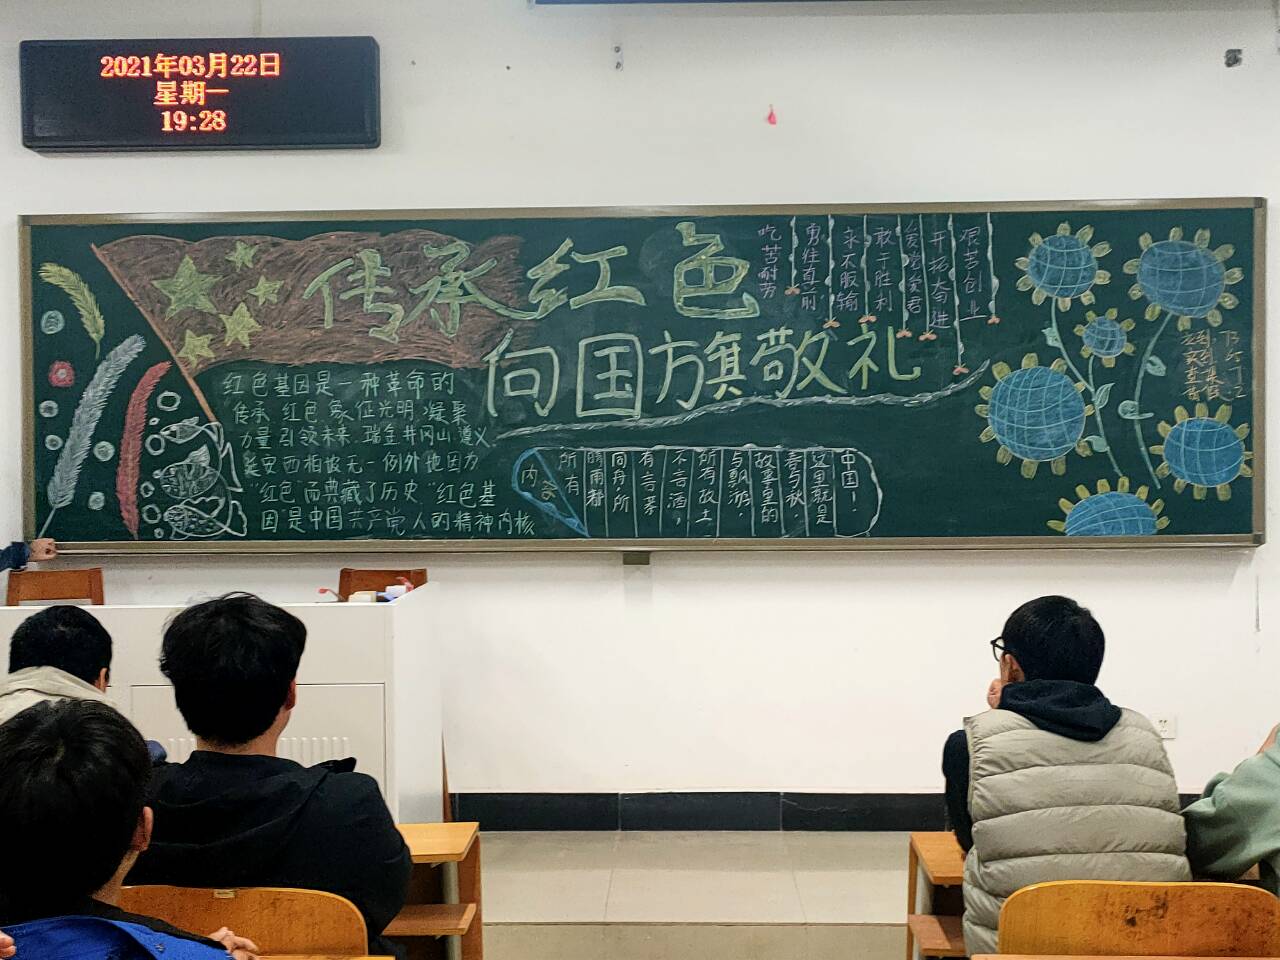 2021年03月22日
星期一
19:28
传承红色
向国旗敬礼
吃苦耐劳
勇往直前
永不服输
敢于胜利
爱党爱君
开拓奋进
艰苦创业
红色基因是一种革命的
传承 红色象征光明,凝聚
力量 引领未来.瑞金井冈山遵义
延安西柏坡无一例外地因为
"红色"而典藏了历史."红色基
因"是中国共产党人的精神内核
中国!
这里就是
春与秋.
故事里的
与飘游,
所有故土
不言酒,
同舟所
晴雨都
所有